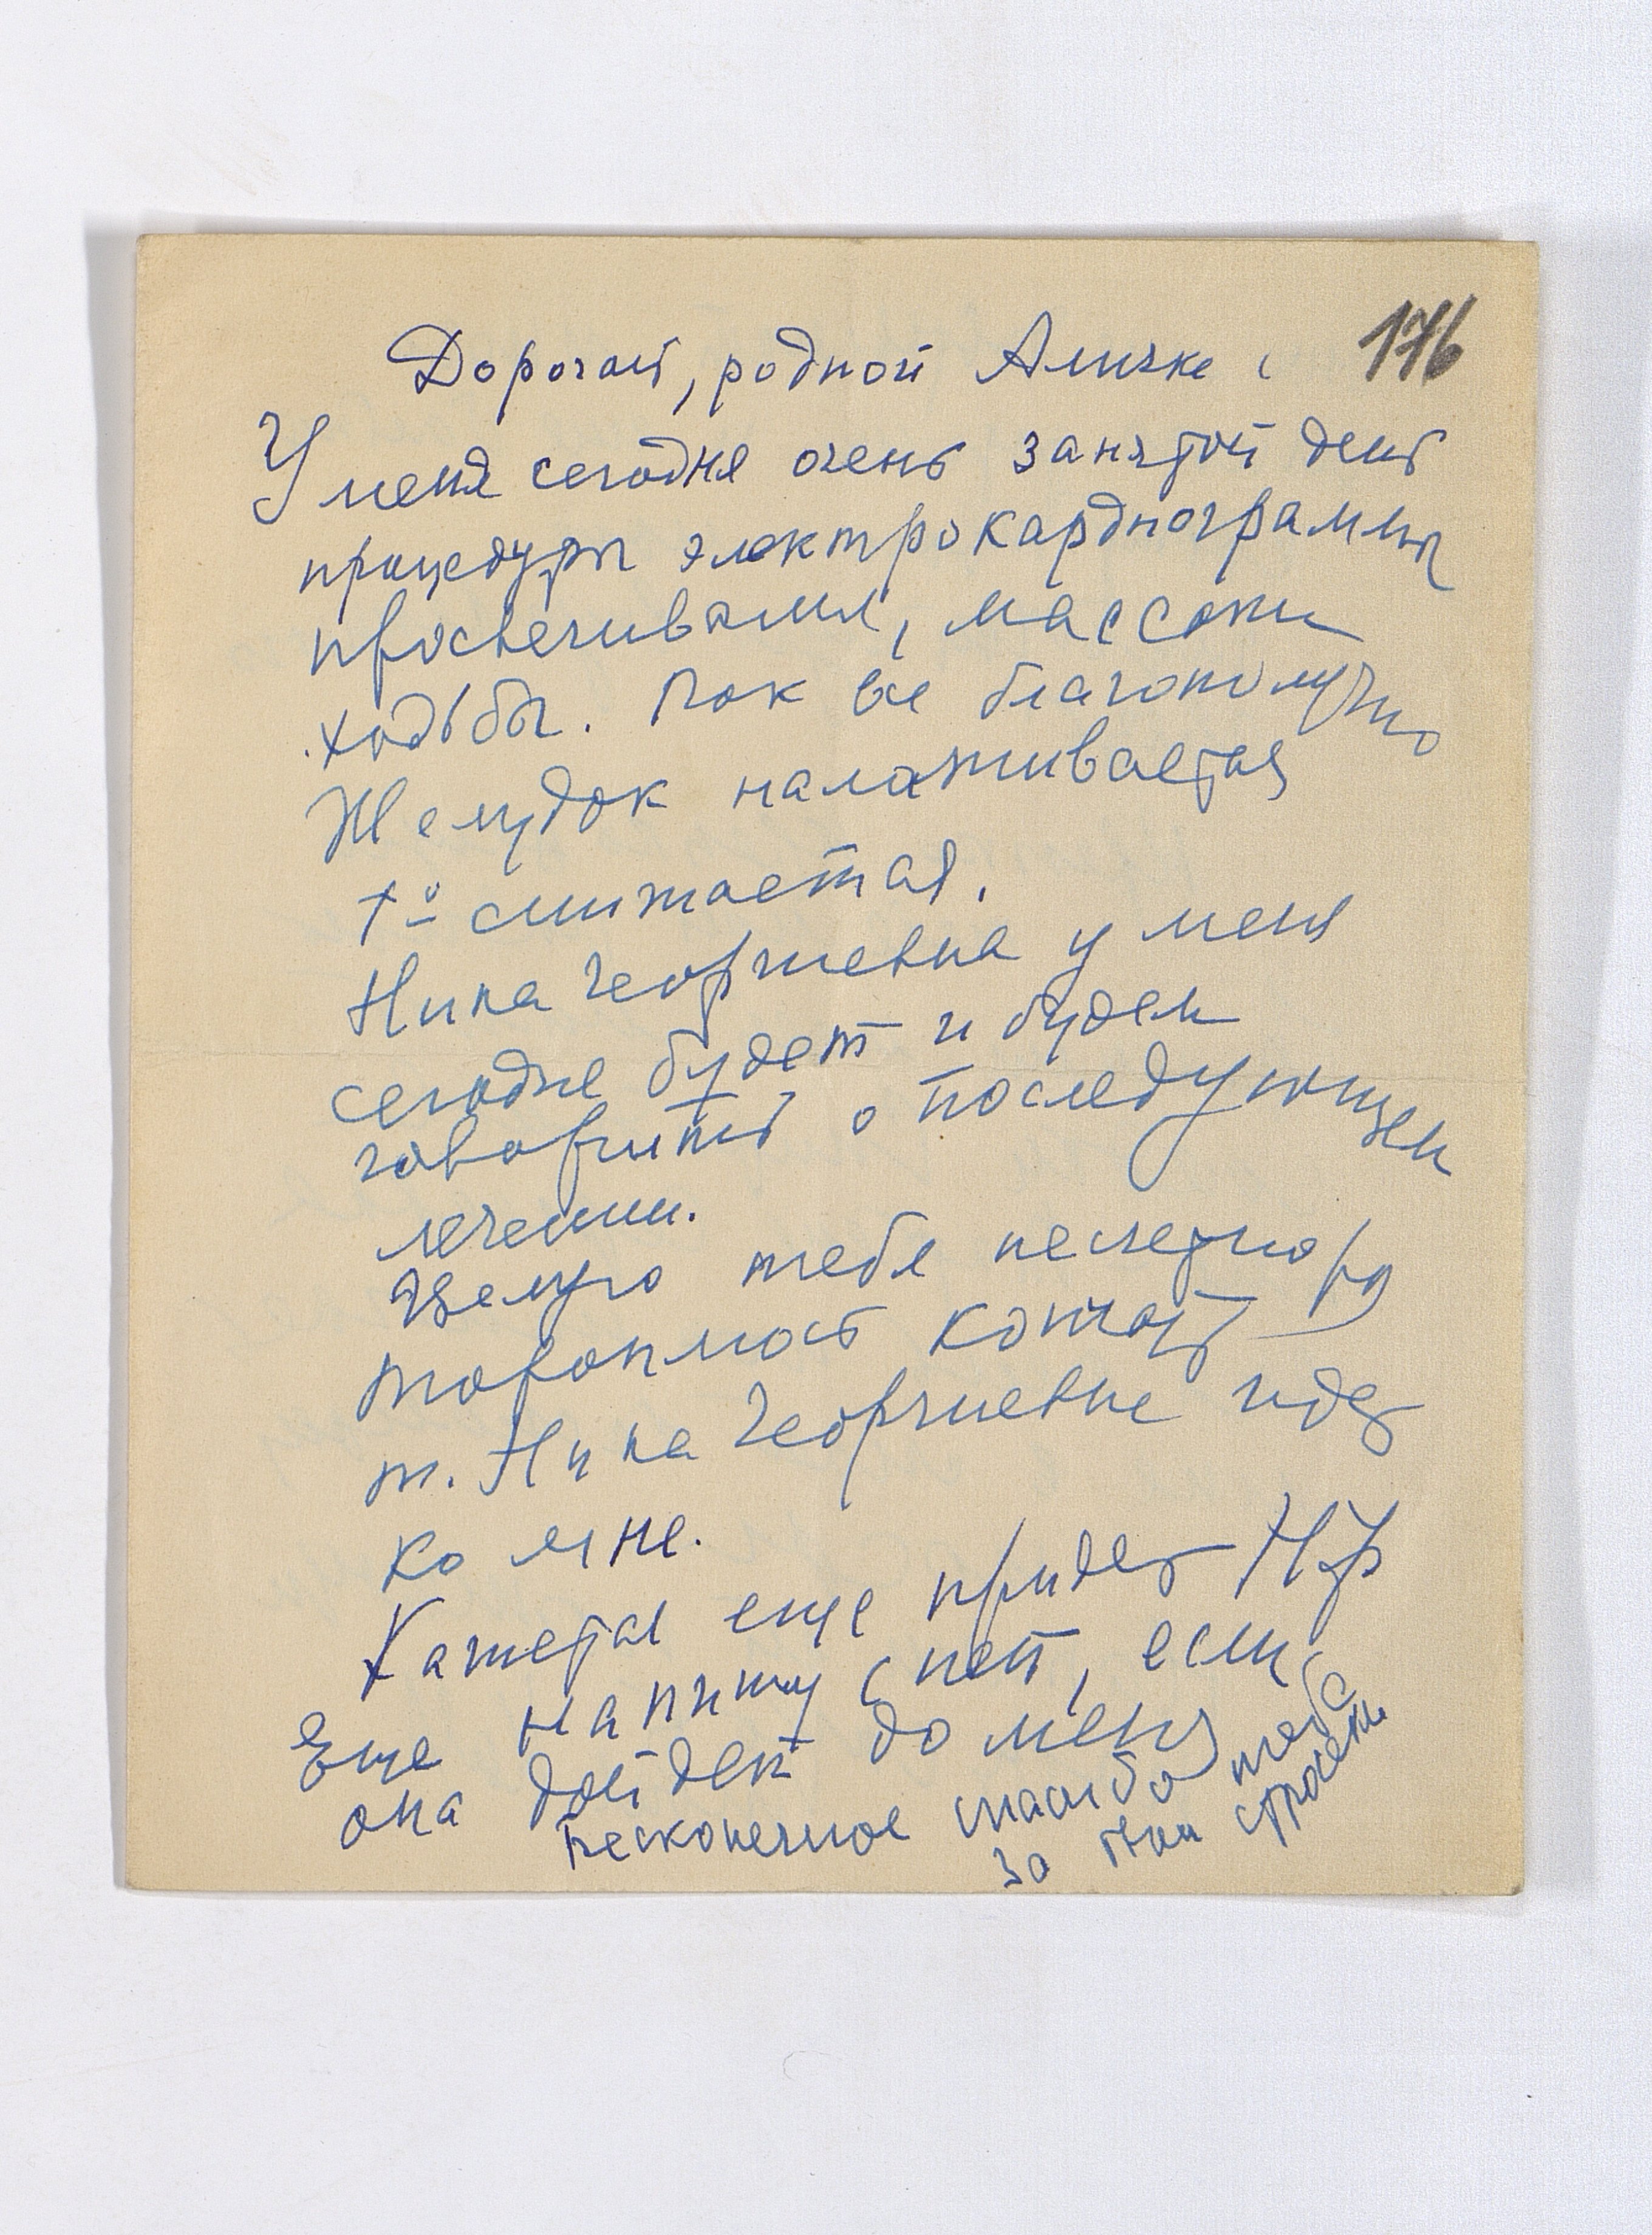 176
Дорогой, родной Аличка!
У меня сегодня очень занятой день
процедуры электрокардиограммы
просвечивания, массажи
ходьбы. Пок все благополучно
Желудок налаживается
t° снижается.
Нина Георгиевна у меня
сегодня будет и будем
говорить о последующем
лечении.
Целую тебя несчетно раз
тороплюсь кончать
т. Нина Георгиевне идет
ко мне.
Кажется еще придет НГ
Еще напишу, если
она дойдет до меня
Бесконечное спасибо тебе
за твои строчки